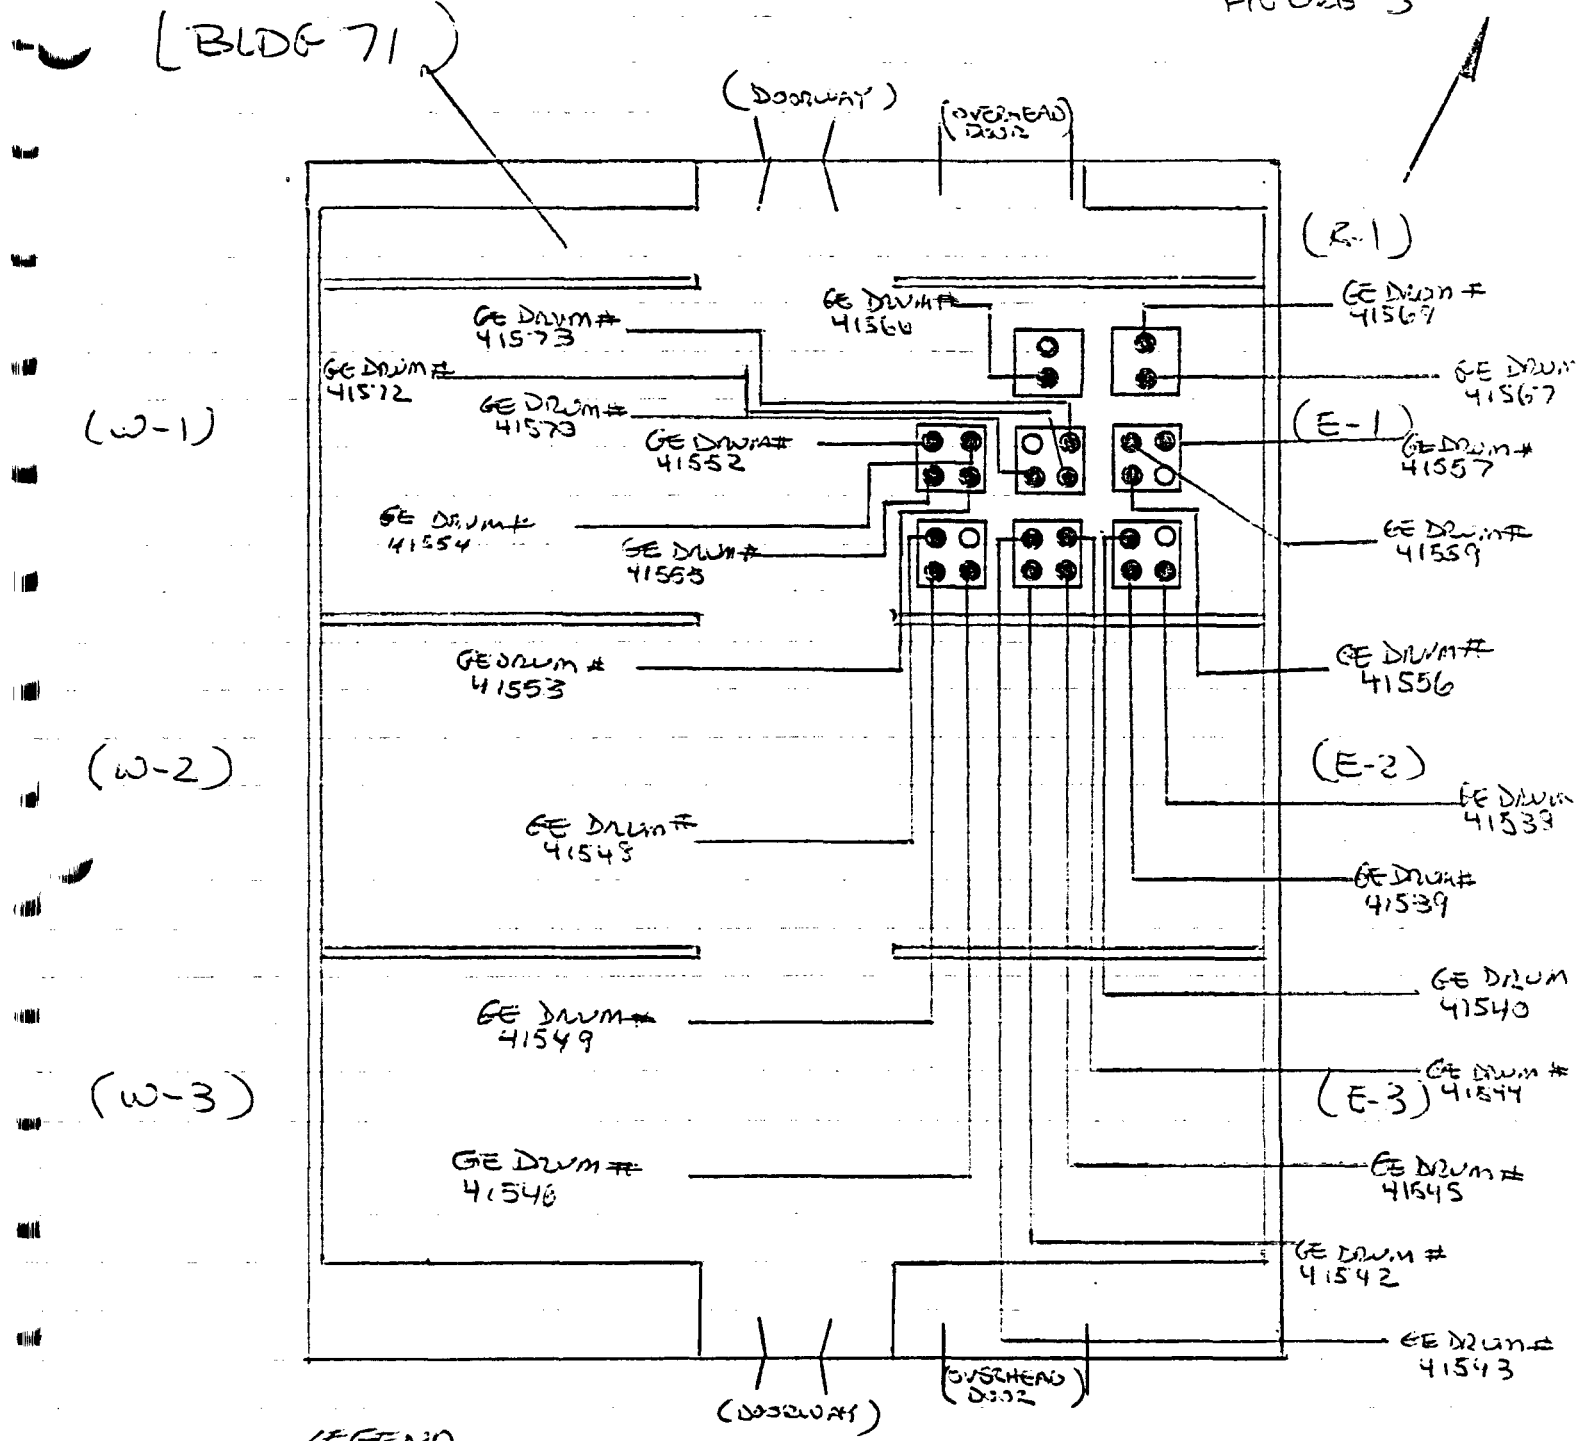 (BLDG 71)
FIGURE 3
(DOORWAY)
(OVERHEAD
DOOR)
GE DRUM#
41566
GE DRUM #
GE DRUM#
41573
GE DRUM#
41572
GE DRUM
41567
(W-1)
(E-1)
GE DRUM#
GE DRUM#
41552
GE DRUM#
41557
GE DRUM#
41554
GE DRUM#
41555
GE DRUM#
41559
GE DRUM #
41553
GE DRUM#
41556
(W-2)
(E-2)
GE DRUM
GE DRUM#
GE DRUM#
41539
GE DRUM
41540
GE DRUM#
41549
GE DRUM #
41544
(W-3)
(E-3)
GE DRUM#
41546
GE DRUM#
41545
GE DRUM #
41542
GE DRUM#
41543
(OVERHEAD
DOOR)
(DOORWAY)
LEGEND